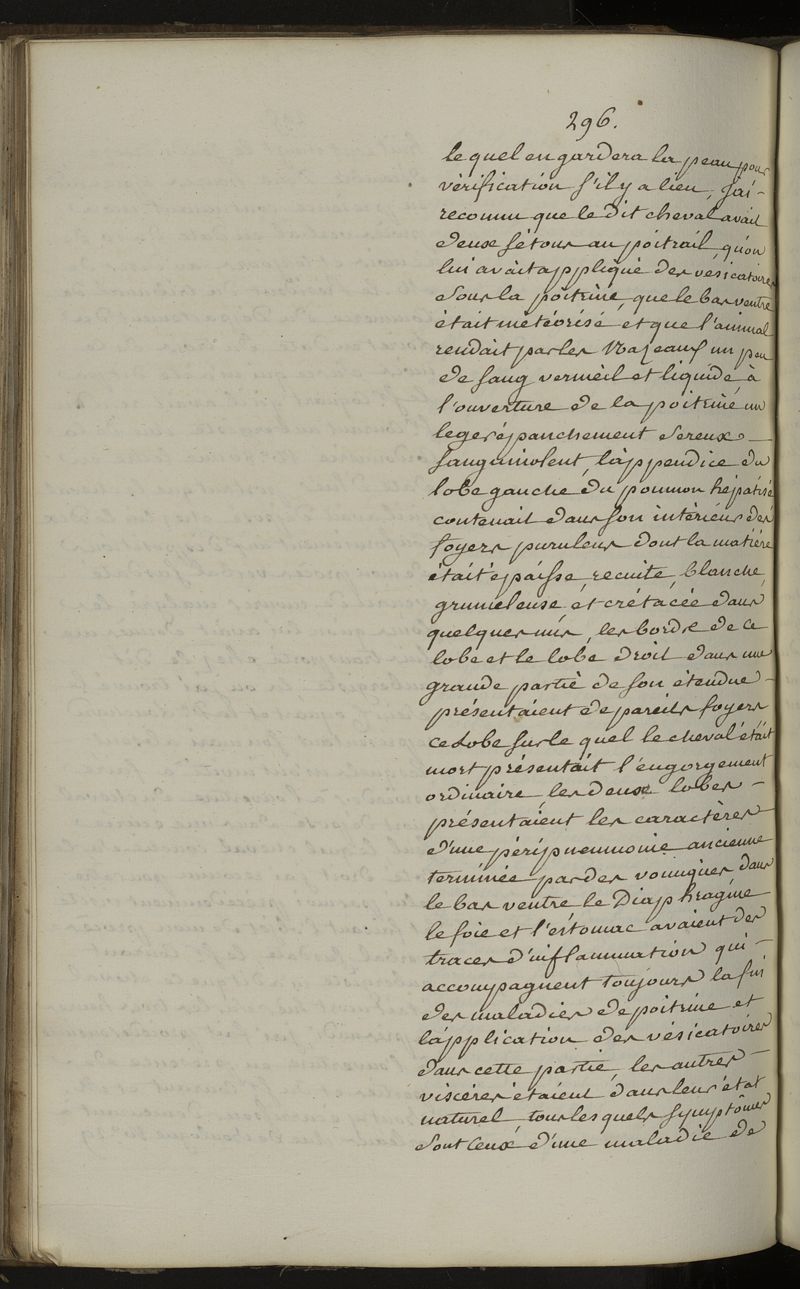 296.
lequel en gardera la peau pour
vérification s'il y a lieu, j'ai -
reconnu que le dit cheval avait
deux sétons au poitrail, qu'on
lui avait appliqué des vésicatoires
sous la poitrine, que le bas ventre
était météorisé et que l'animal
rendait par les Nazeaux un peu
de sang vermeil et liquide, à
l'ouverture de la poitrine, un
leger épanchement sereux -
sanguinolent, l'appendice du
lobe gauche du poumon hépatisé
contenait dans son intérieur des
foyers puruleus dont la matière
était épaisse, recuite, blanche,
grumeleuse, et crétacée dans
quelques uns, les bords de ce
lobe et le lobe droit dans une
grande partie de son étendue -
présentaient de pareils foyers
ce Lobe sur le quel le cheval était
mort présentait l'engorgement
ordinaire, les deux lobes -
présentaient les caractères
d'une péripneumonie ancienne
terminée par des vomiques dans
le bas ventre le Diaphragme
le foie et l'estomac avaient des
traces d'inflammation qui -
accompagnent toujours la fin
des maladies de poitrine et
l'application des vésicatoires
dans cette partie, les autres -
viscères étaient dans leur état
naturel, tous lesquels symptômes
sont ceux d'une maladie de